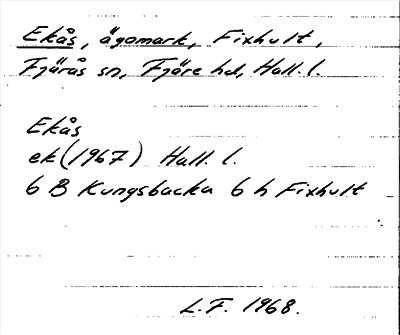 Ekås, ägomark, Fixhult,
Fjärås sn, Fjäre hd, Hall. l.
Ekås
ek (1967) Hall. l.
6 B Kungsbacka 6 h Fixhult
L.F. 1968.